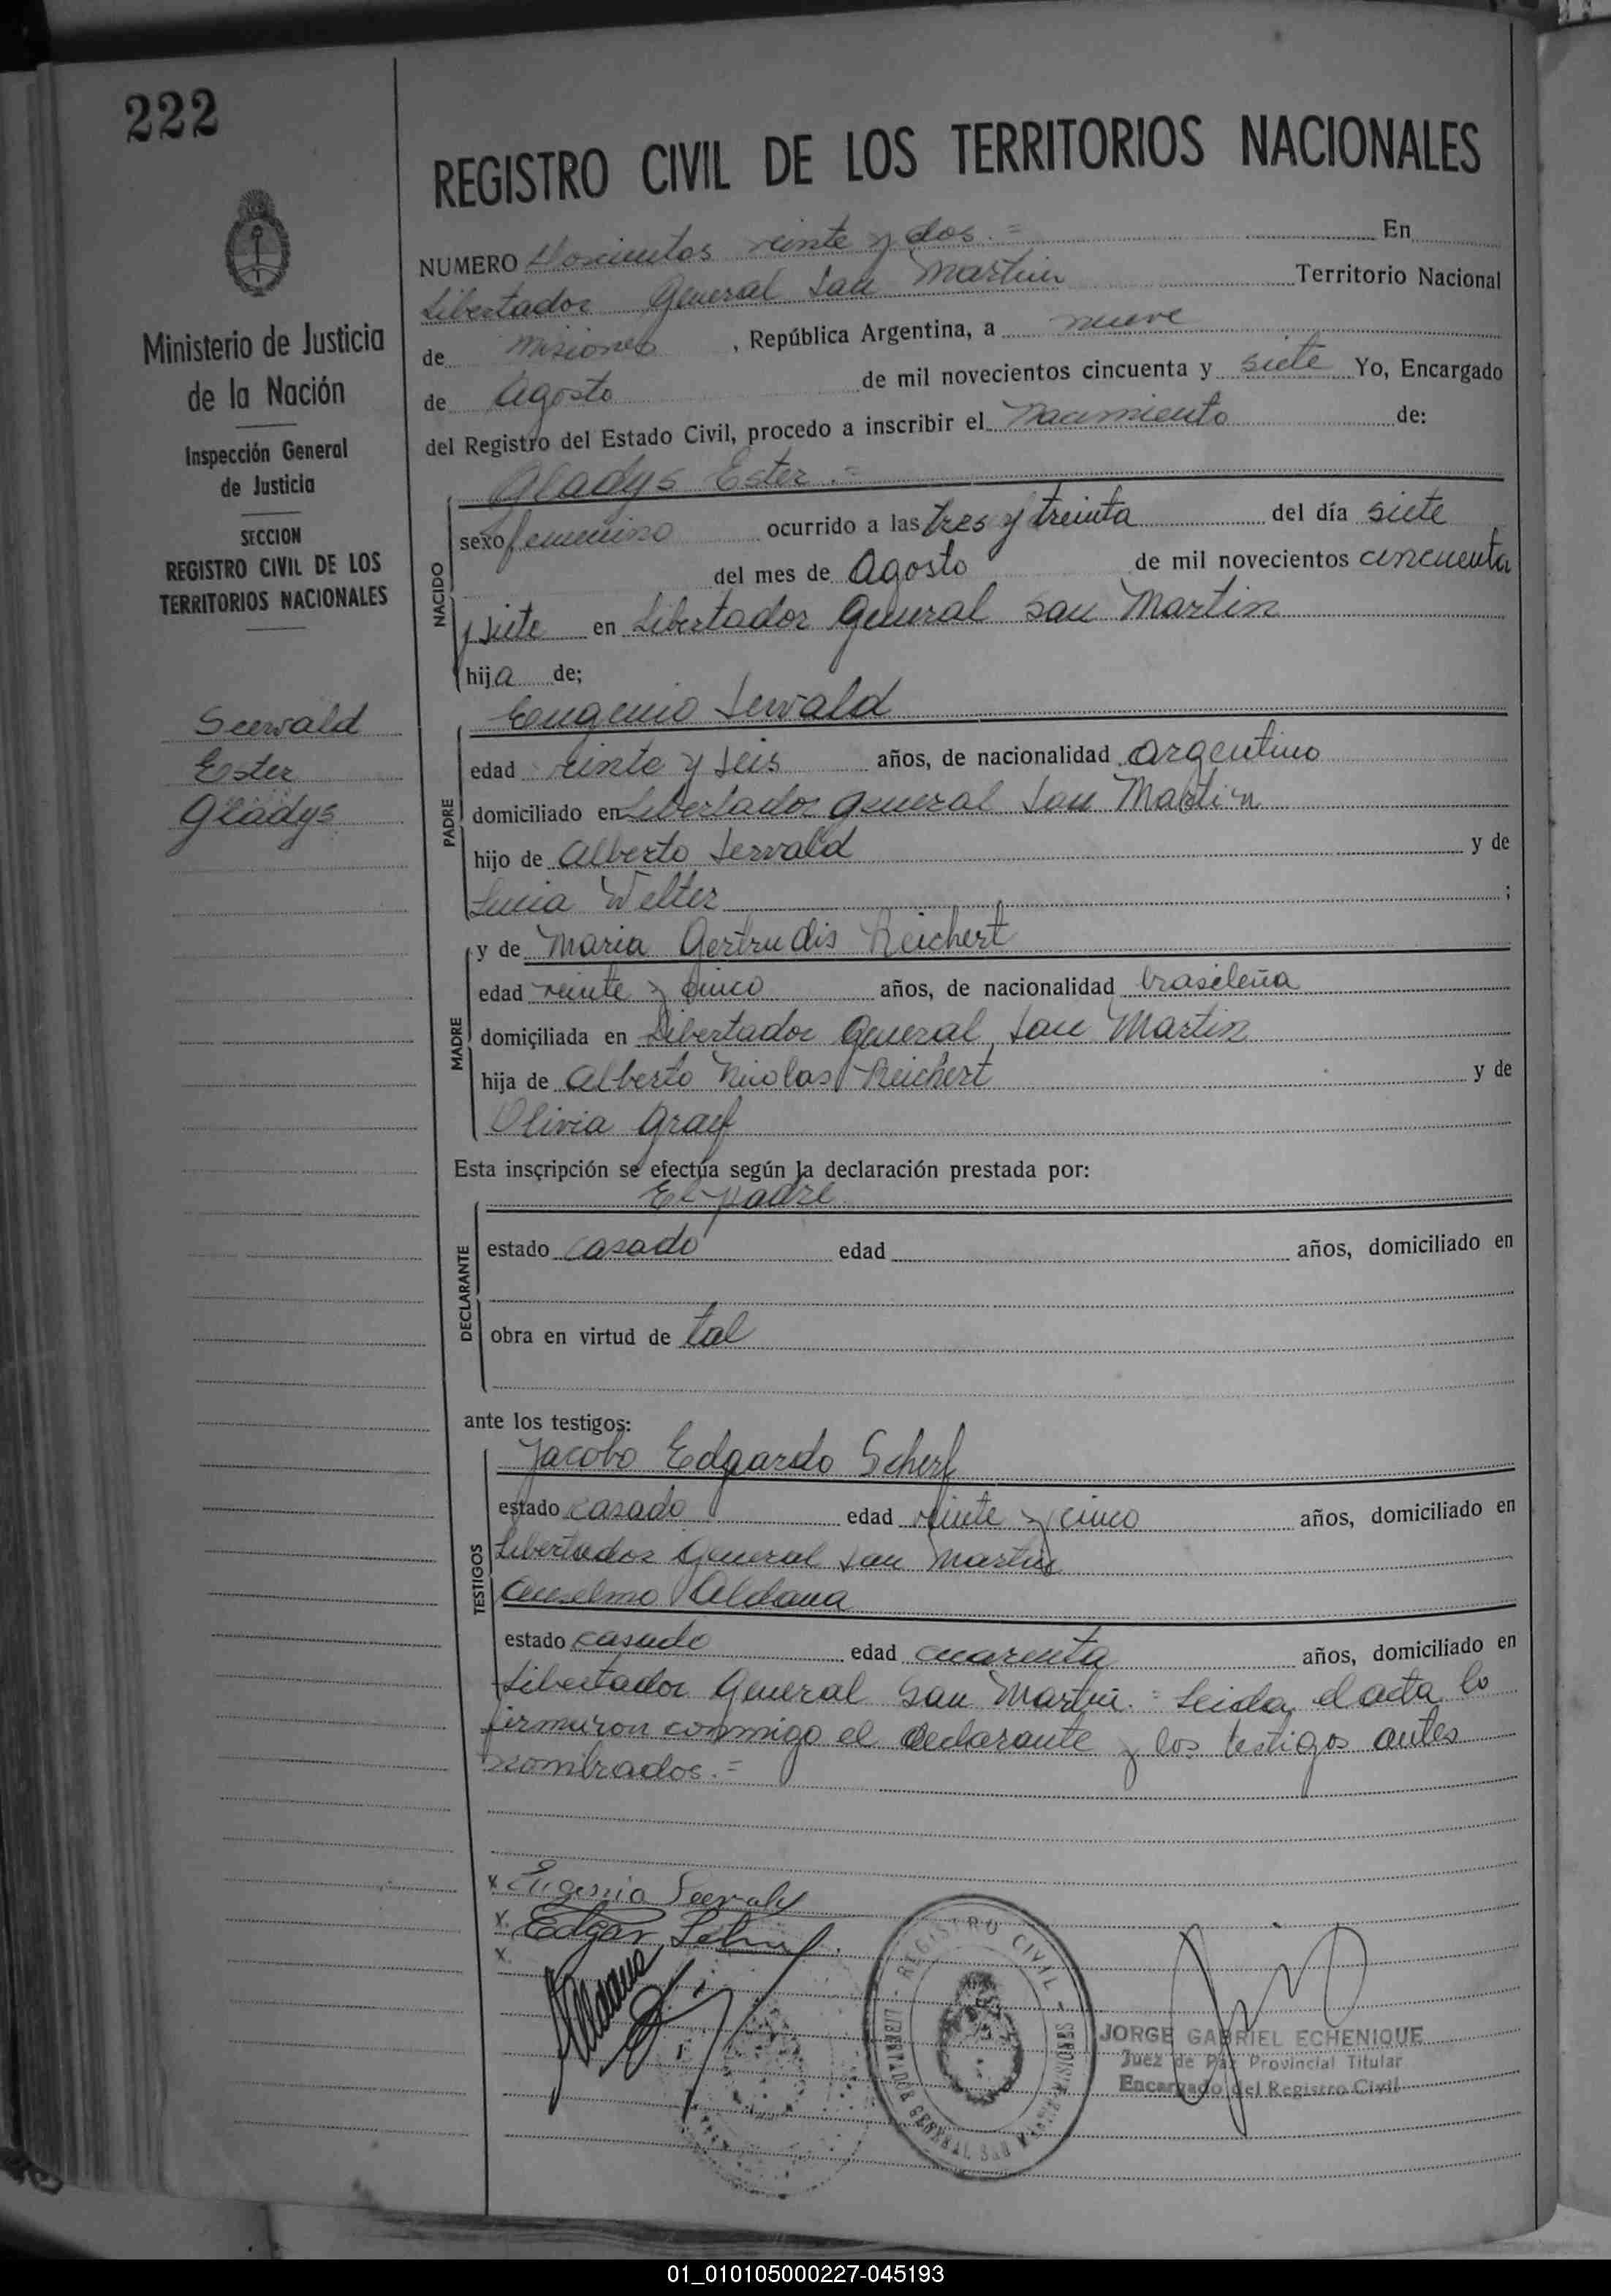 222
Ministerio de Justicia
de la Nación
Inspección General
de Justicia
SECCION
REGISTRO CIVIL DE LOS
TERRITORIOS NACIONALES
Seewald
Ester
Gladys
REGISTRO CIVIL DE LOS TERRITORIOS NACIONALES
NUMERO Doscientos veinte y dos.= En
Libertador General San Martin Territorio Nacional
de Misiones, República Argentina, a nueve
de Agosto de mil novecientos cincuenta y siete Yo, Encargado
del Registro del Estado Civil, procedo a inscribir el Nacimiento de:
Gladys Ester.=
NACIDO
sexo femenino ocurrido a las tres y treinta del día siete
del mes de Agosto de mil novecientos cincuenta
y siete en Libertador General San Martin
hija de;
PADRE
Eugenio Sewald
edad veinte y seis años, de nacionalidad argentino
domiciliado en Libertador General San Martin
hijo de Alberto Sewald y de
Lucia Welter ;
MADRE
y de Maria Gertrudis Reichert
edad veinte y cinco años, de nacionalidad brasileña
domiciliada en Libertador General San Martin
hija de Alberto Nicolas Reichert y de
Olivia Graef
Esta inscripción se efectúa según la declaración prestada por:
DECLARANTE
El padre
estado casado edad años, domiciliado en
obra en virtud de tal
ante los testigos:
TESTIGOS
Jacobo Edgardo Scherf
estado casado edad veinte y cinco años, domiciliado en
Libertador General San Martin
Anselmo Aldana
estado casado edad cuarenta años, domiciliado en
Libertador General San Martin.= Leida el acta lo
firmaron conmigo el declarante y los testigos antes
nombrados.=
x Eugenio Seewald
x Edgar Scherf
x Aldana
REGISTRO CIVIL
LIBERTADOR GENERAL SAN MARTIN
JORGE GABRIEL ECHENIQUE
Juez de Paz Provincial Titular
Encargado del Registro Civil
01_010105000227-045193